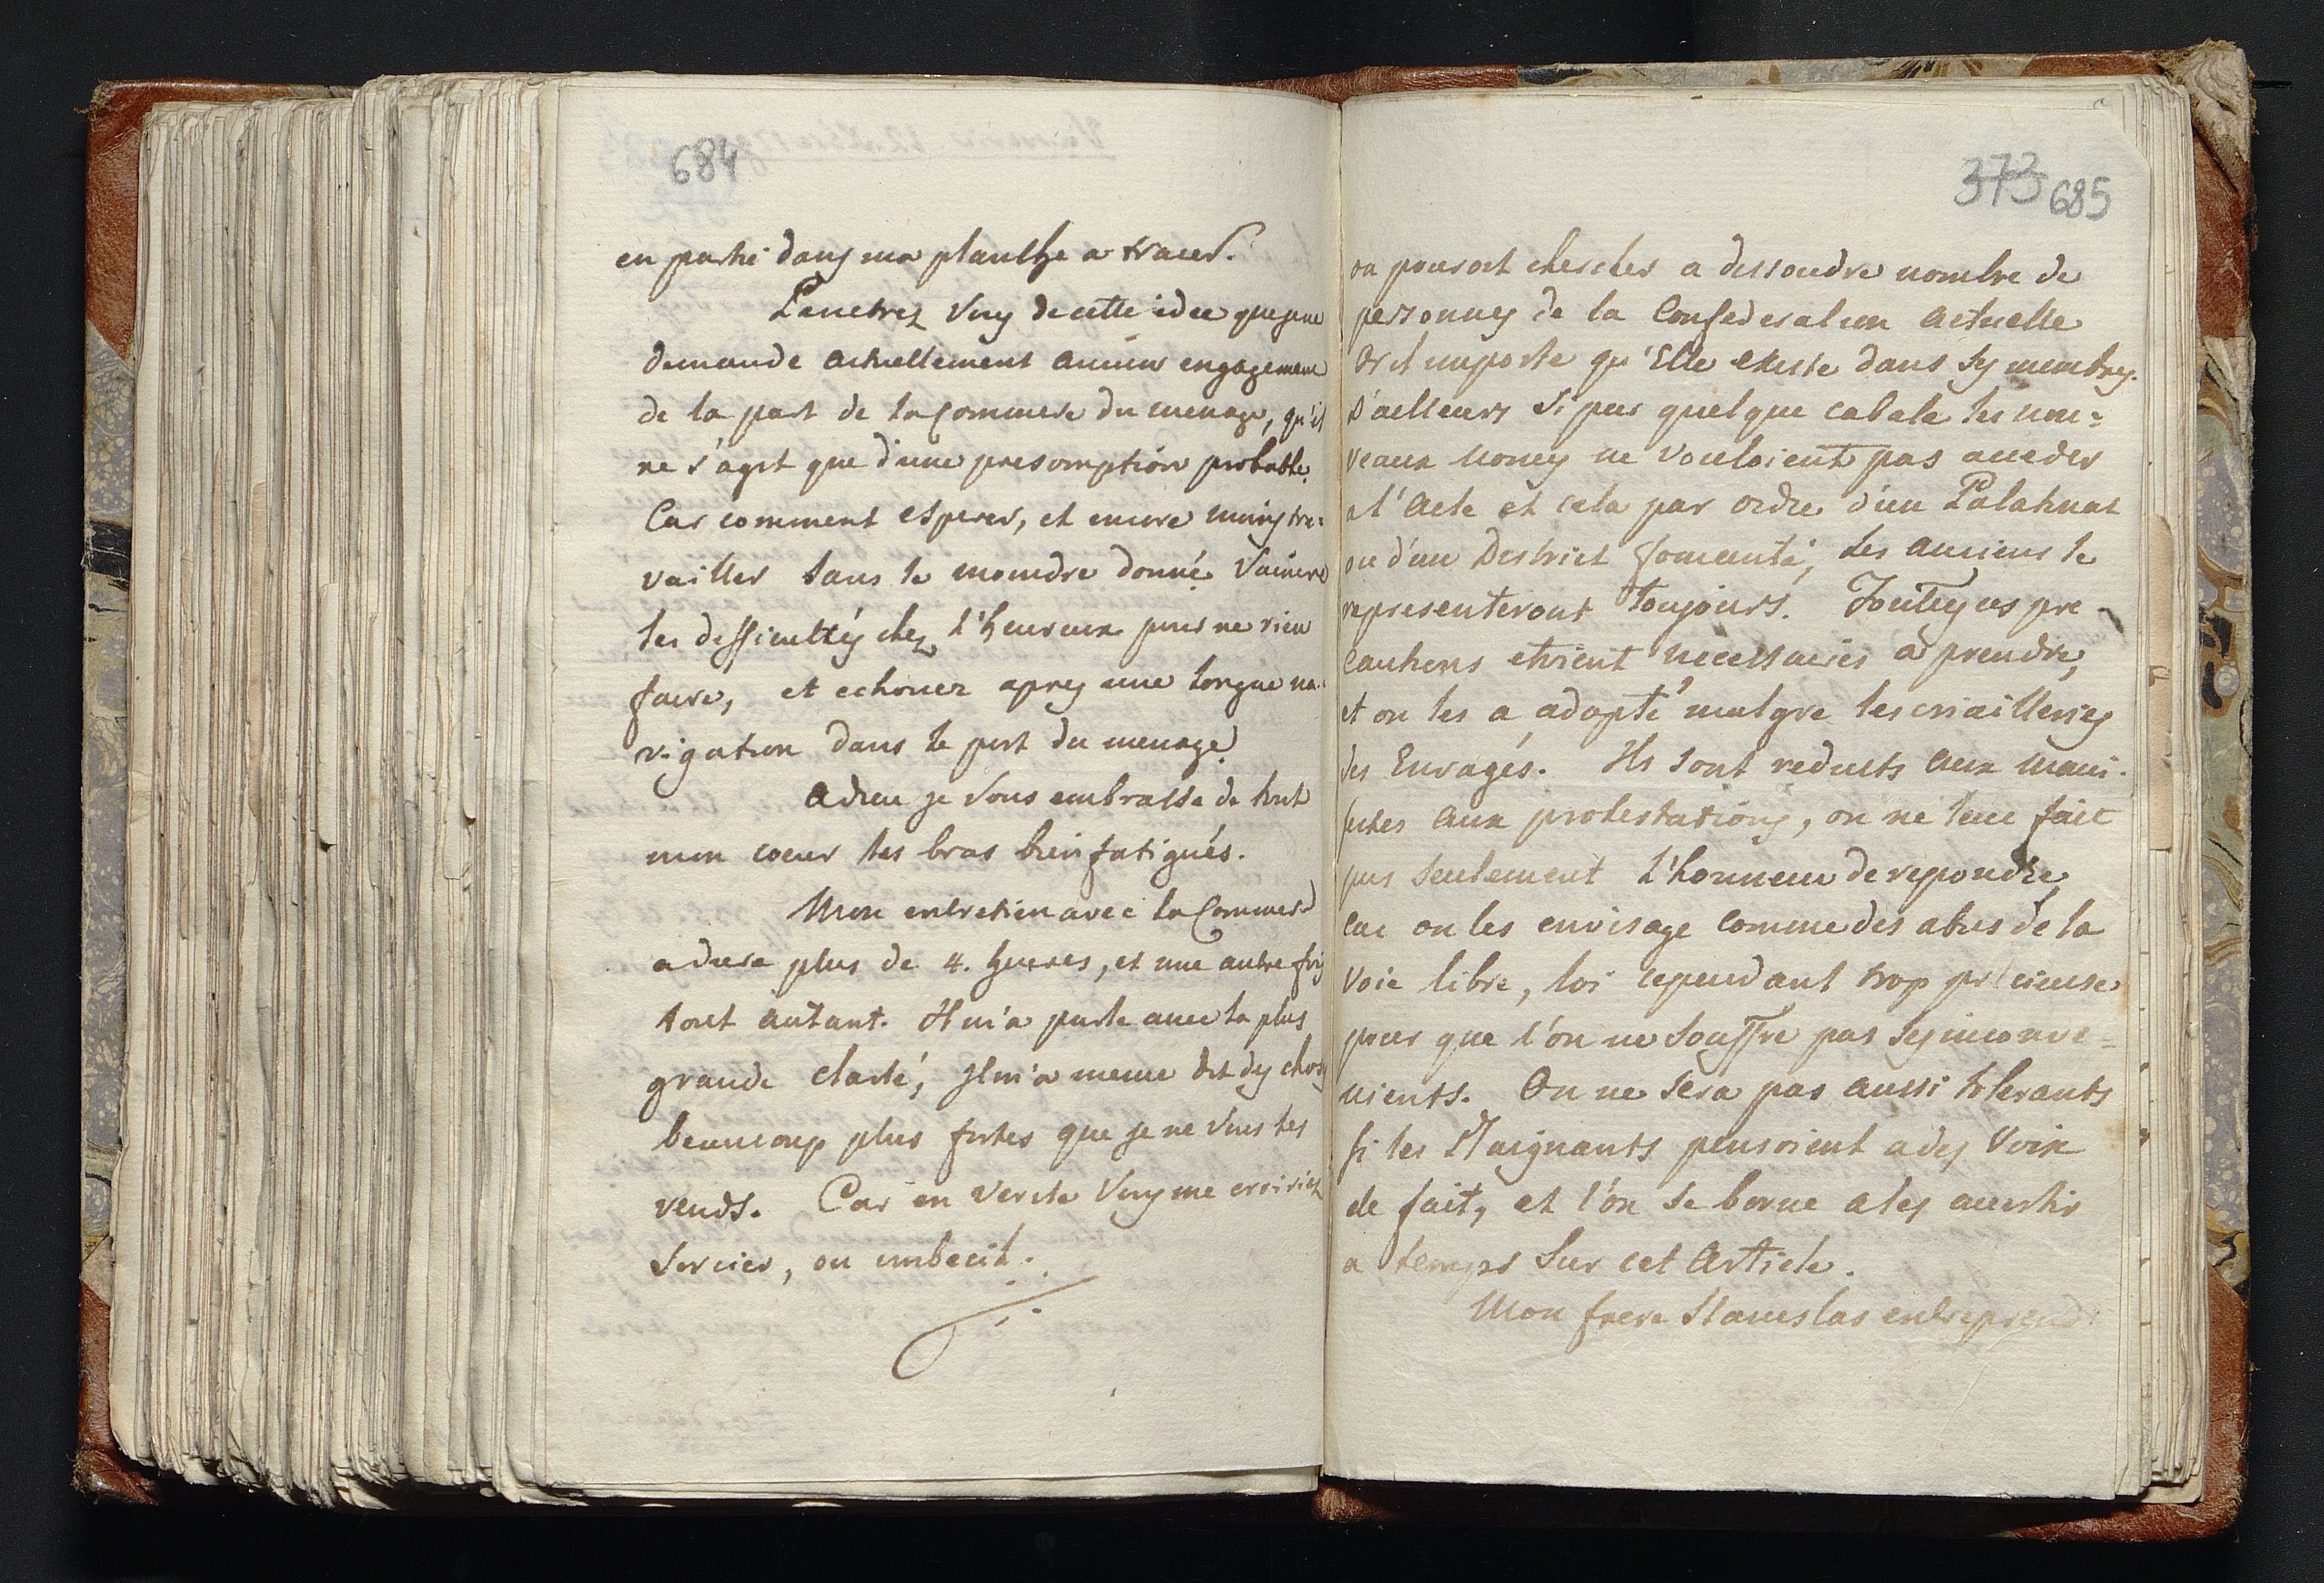 684
en partie dans ma planche a tracer.
Penetrez Vous de cette idee que je ne
demande actuellement aucun engagement
de la part de la Commere du menage, qu'il
ne s'agit que d'une presomption probable.
Car comment esperer, et encore moins tra=
vailler sans la moindre donnée vaincre
les difficultés chez l'heureux puis ne rien
faire, et echouer apres une longue na=
vigation dans le port du menage.
Adieu je vous embrasse de tout
mon coeur les bras bien fatigués.
Mon entretien avec la Commere
a duré plus de 4. heures, et une autre fois
tout autant. Il m'a parlé avec la plus
grande clarté, Il m'a meme dit des choses
beaucoup plus fortes que je ne vous les
rends. Car en verité Vous me croiriez
sorcier, ou imbecil.
373 685
on pouroit chercher a dissoudre nombre de
personnes de la Confederation actuelle
Or il importe qu'Elle existe dans ses membres.
D'ailleurs si par quelque cabale les nou=
veaux Nonces ne vouloient pas acceder
a l'Acte et cela par ordre d'un Palatinat
ou d'un District fomenté, les anciens le
representeront toujours. Toutes ces pre
cautions etoient necessaires a prendre,
et on les a adopté malgre les criailleries
des Enragés. Ils sont reduits aux mani=
festes aux protestations, on ne leur fait
pas seulement l'honneur de repondre
car on les envisage comme des abus de la
Voie libre, loi cependant trop precieuse
pour que l'on ne souffre pas ses inconve=
nients. On ne sera pas aussi tolerants
si les Plaignants pensoient a des Voix
de fait, et l'on se borne a les avertir
a temps sur cet Article.
Mon frere Stanislas entreprend